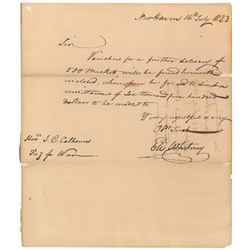 New Haven 16th July 1823
Sir
Vouchers for a further delivery of
500 Muskets will be found herewith
inclosed, whereupon be pleased to order a
remittance of Six thousand five hundred
dollars to be made to
Very respectful & very
Obt Servt
Eli Whitney
Hon. J. C. Calhoun
Secy for War